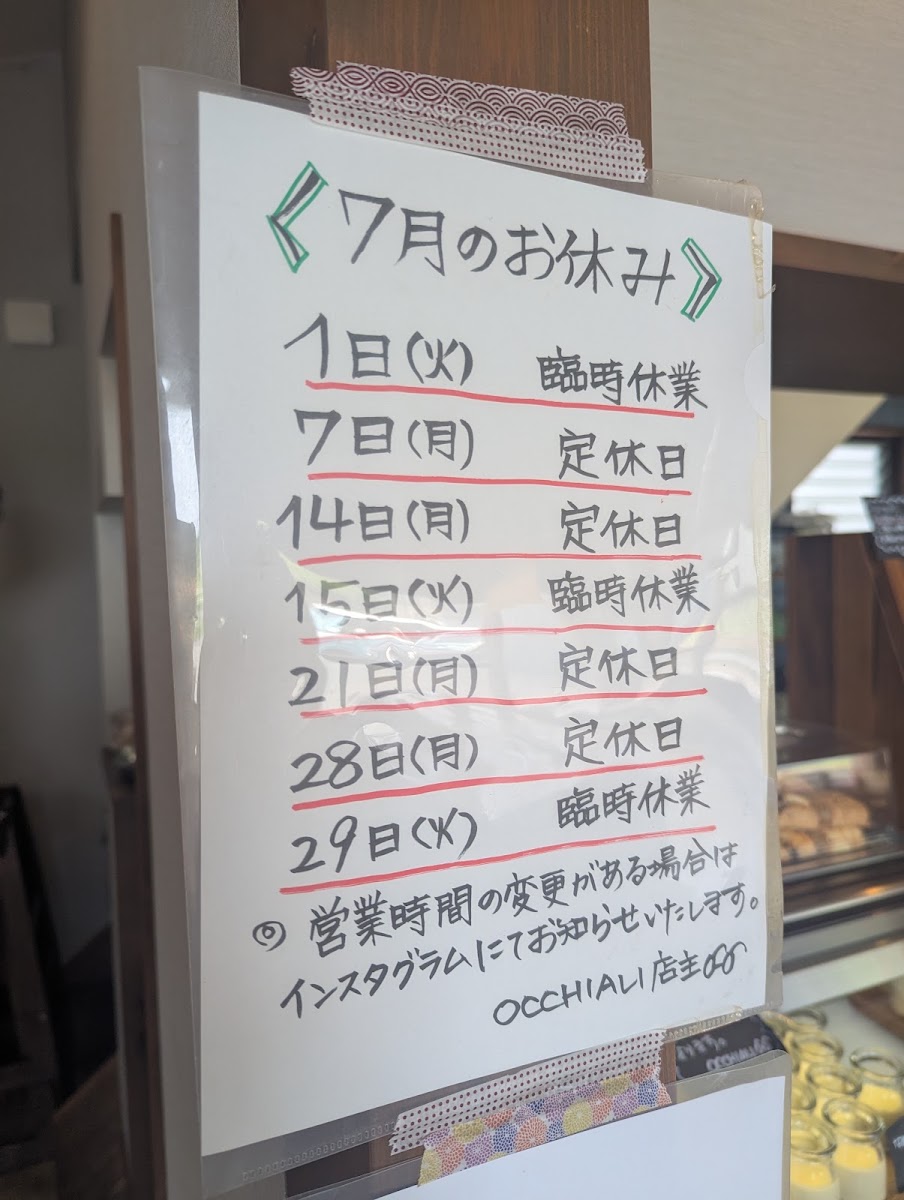 《7月のお休み》
1日(火) 臨時休業
7日(月) 定休日
14日(月) 定休日
15日(火) 臨時休業
21日(月) 定休日
28日(月) 定休日
29日(火) 臨時休業
◎営業時間の変更がある場合は
インスタグラムにてお知らせいたします。
OCCHIALI店主